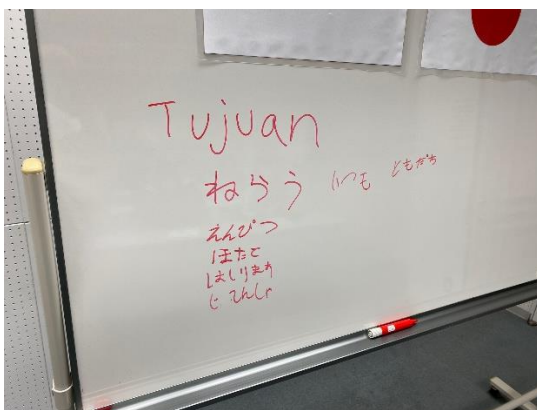 Tujuan
ねらう いつも ともだち
えんぴつ
ほたて
はしりまち
じてんしゃ